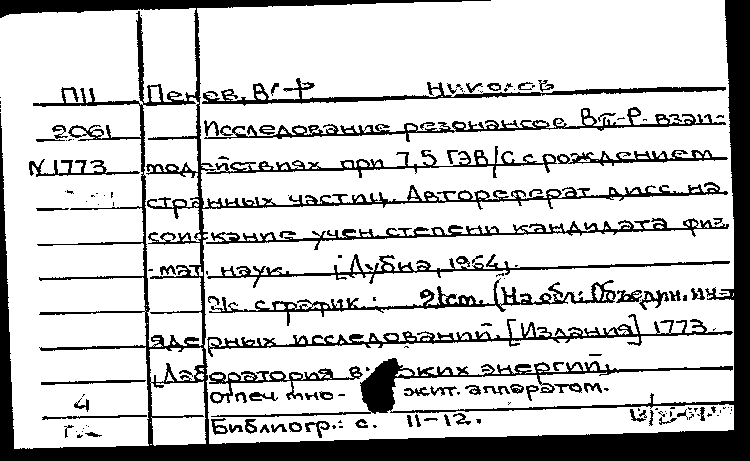 П11 Пенев, В. Николов
2061 Исследование резонансов в π-P- взаи-
N1773 модействиях при 7,5 ГЭВ/С с рождением
странных частиц. Автореферат дисс. на
соискание учен. степени кандидата физ.
-мат. наук. [Дубна, 1964].
21с. с график.; 21cm. (На обл: Объедин. ин-т
ядерных исследований. [Издания] 1773.
Лаборатория энергий).
отпеч. мно- жит. аппаратом.
4
Библиогр.: с. 11-12.